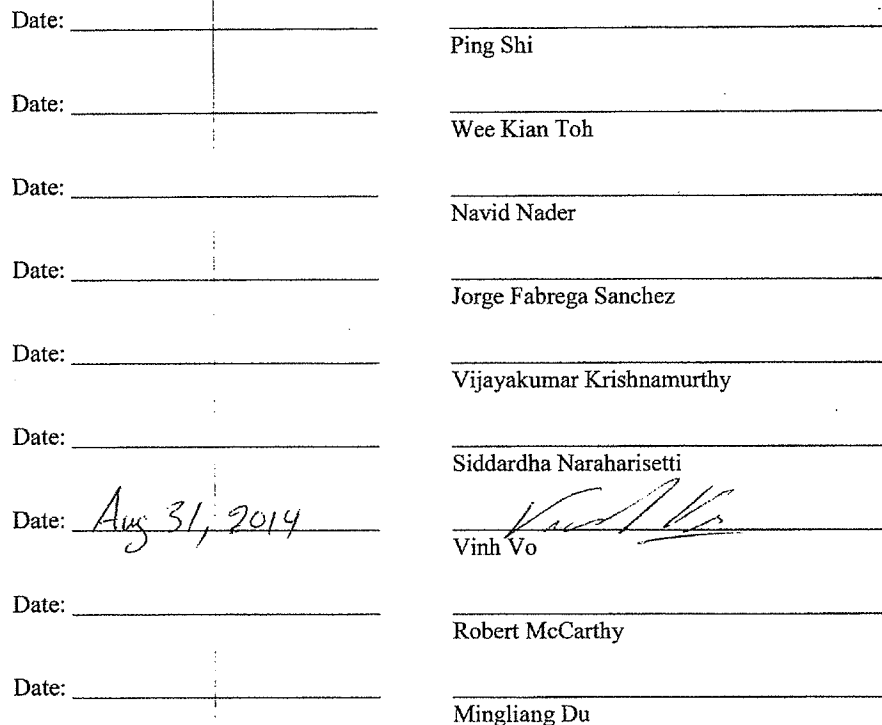 Date:
Ping Shi
Date:
Wee Kian Toh
Date:
Navid Nader
Date:
Jorge Fabrega Sanchez
Date:
Vijayakumar Krishnamurthy
Date:
Siddardha Naraharisetti
Date: Aug 31, 2014
Vinh Vo
Date:
Robert McCarthy
Date:
Mingliang Du